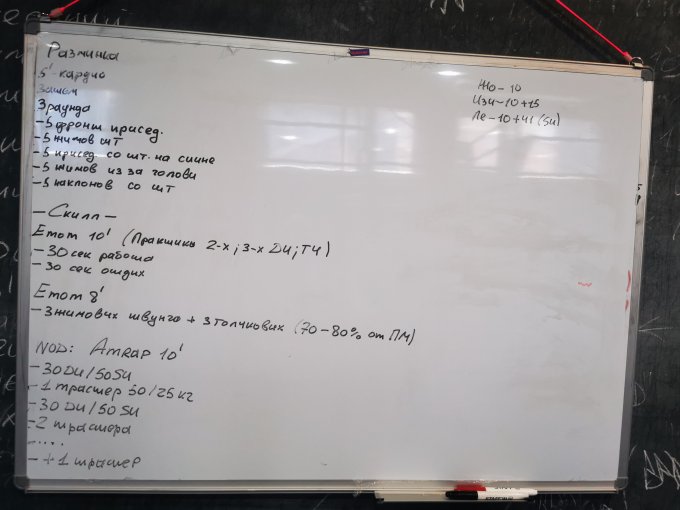 Разминка
5' кардио
Затем
3 раунда
- 5 фронт присед.
- 5 жимов шт
- 5 присед со шт. на спине
- 5 жимов из за головы
- 5 наклонов со шт
- Скилл -
Emom 10' (Практика 2-х; 3-х DU; ТУ)
- 30 сек работа
- 30 сек отдих
Emom 8'
- 3 жимових швунга + 3 толчкових (70-80% от ПМ)
WOD: Amrap 10'
- 30 DU/50 SU
- 1 трастер 50/25 кг
- 30 DU/50 SU
- 2 трастера
- ....
- + 1 трастер
Жо - 10
Изи - 10+15
Ле - 10+41 (SU)